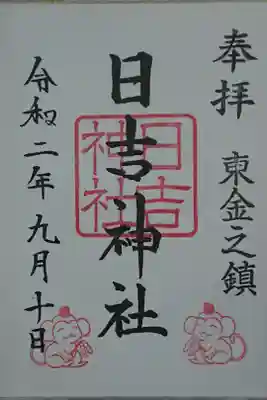 奉拝 東金之鎮
日吉神社
日吉神社
令和二年九月十日